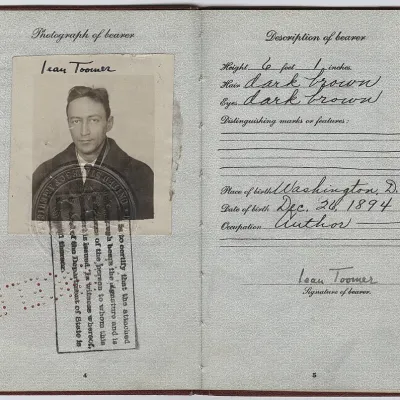 Photograph of bearer
Jean Toomer
is to certify that the attached
bears the signature and is
of the person to whom this
is issued. In witness whereof,
of the Department of State is
4
Description of bearer
Height 6 feet 1 inches.
Hair dark brown
Eyes dark brown
Distinguishing marks or features:
Place of birth Washington, D.
Date of birth Dec. 26, 1894
Occupation Author
Jean Toomer
Signature of bearer.
5